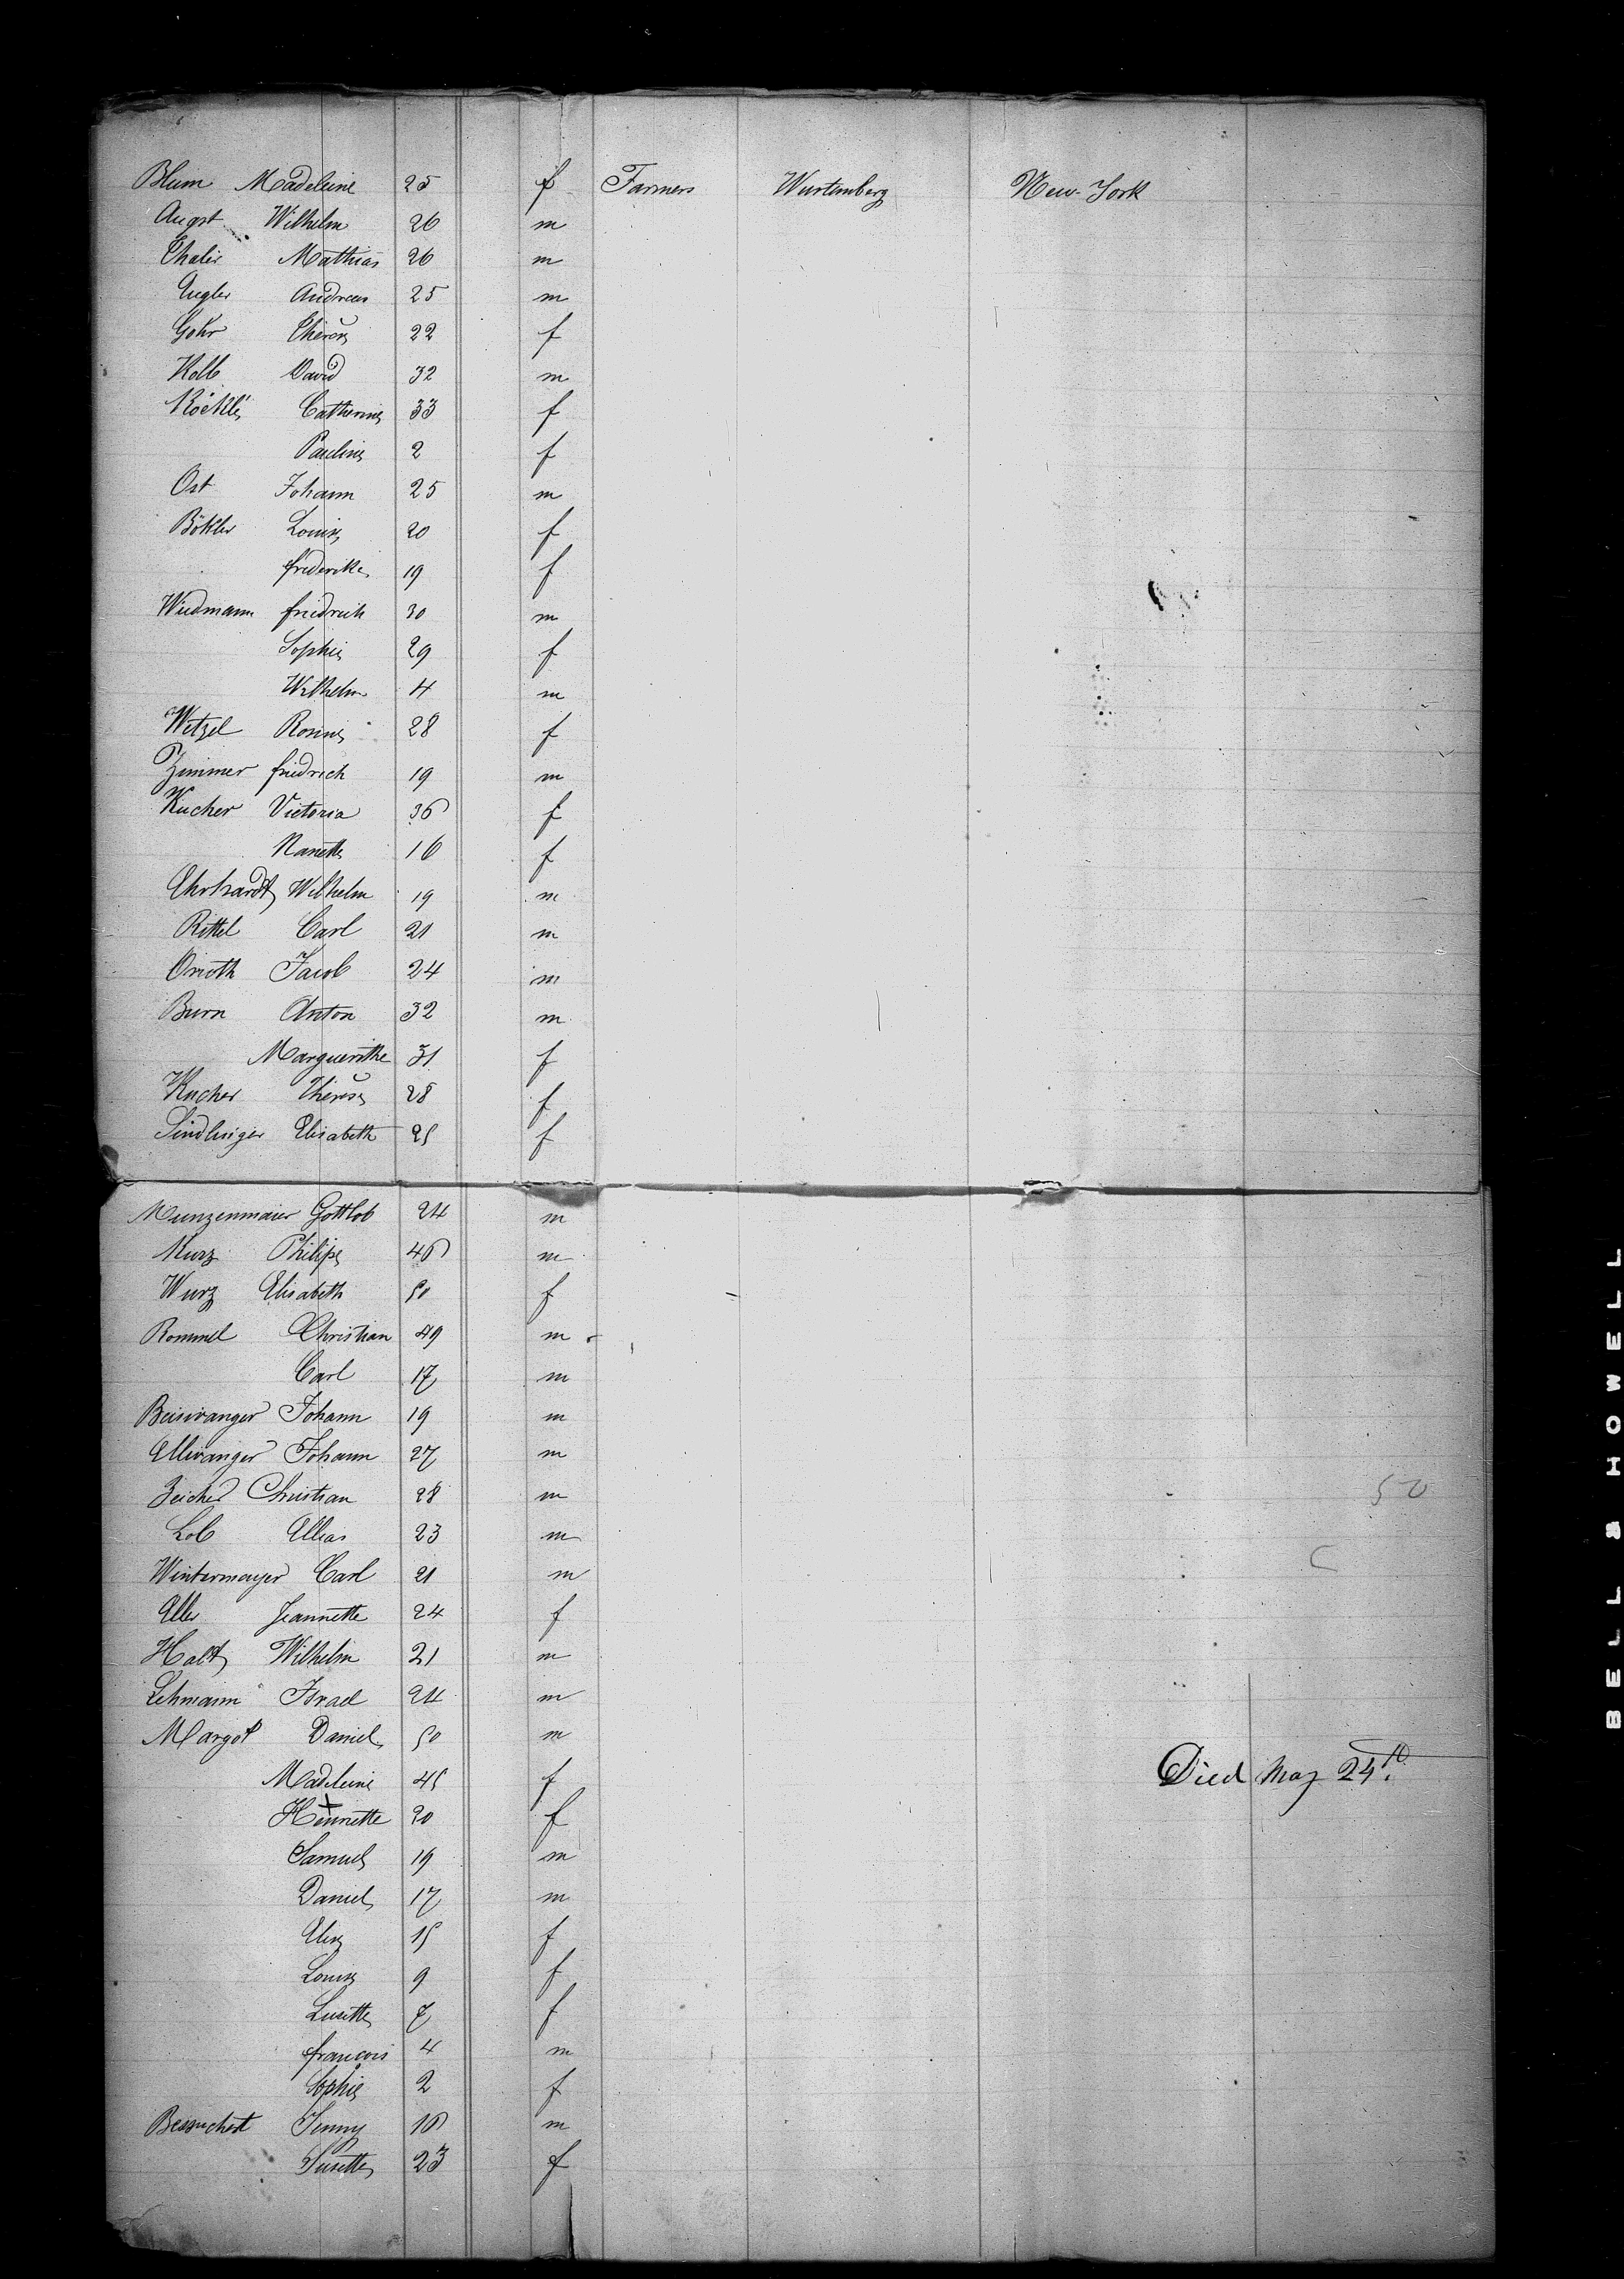 Blum Madeleine 25 f Farmers Wurtemberg New-York
Angst Wilhelm 26 m
Thaler Mathias 26 m
Engler Andreas 25 m
Gohr Thérèse 22 f
Kolb David 32 m
Röckle Catherine 33 f
Pauline 2 f
Ost Johann 25 m
Bökler Louise 20 f
friderike 19 f
Wiedmann friedrich 30 m
Sophie 29 f
Wilhelm 4 m
Wetzel Rosine 28 f
Zimmer friedrich 19 m
Kucher Victoria 36 f
Nanette 16 f
Ehrhardt Wilhelm 19 m
Rittel Carl 21 m
Orioth Jacob 24 m
Burn Anton 32 m
Marguerithe 31 f
Kucher Thérèse 28 f
Sindlinger Elisabeth 25 f
Munzenmaier Gottlob 24 m
Kurz Philipe 46 m
Wurz Elisabeth 50 f
Rommel Christian 49 m
Carl 17 m
Beiswanger Johann 19 m
Ellwanger Johann 27 m
Zeicher Christian 28 m
Lob Elias 23 m
Wintermayer Carl 21 m
Eller Jeannette 24 f
Halt Wilhelm 21 m
Lehmann Israel 24 m
Margot Daniel 50 m
Madeleine 45 f Died May 24th
Henriette 20 f
Samuel 19 m
Daniel 17 m
Elise 15 f
Louise 9 f
Lucette 7 f
francois 4 m
Sophie 2 f
Bessuchet Jenny 16 m
Susette 23 f
50
C
BELL & HOWELL